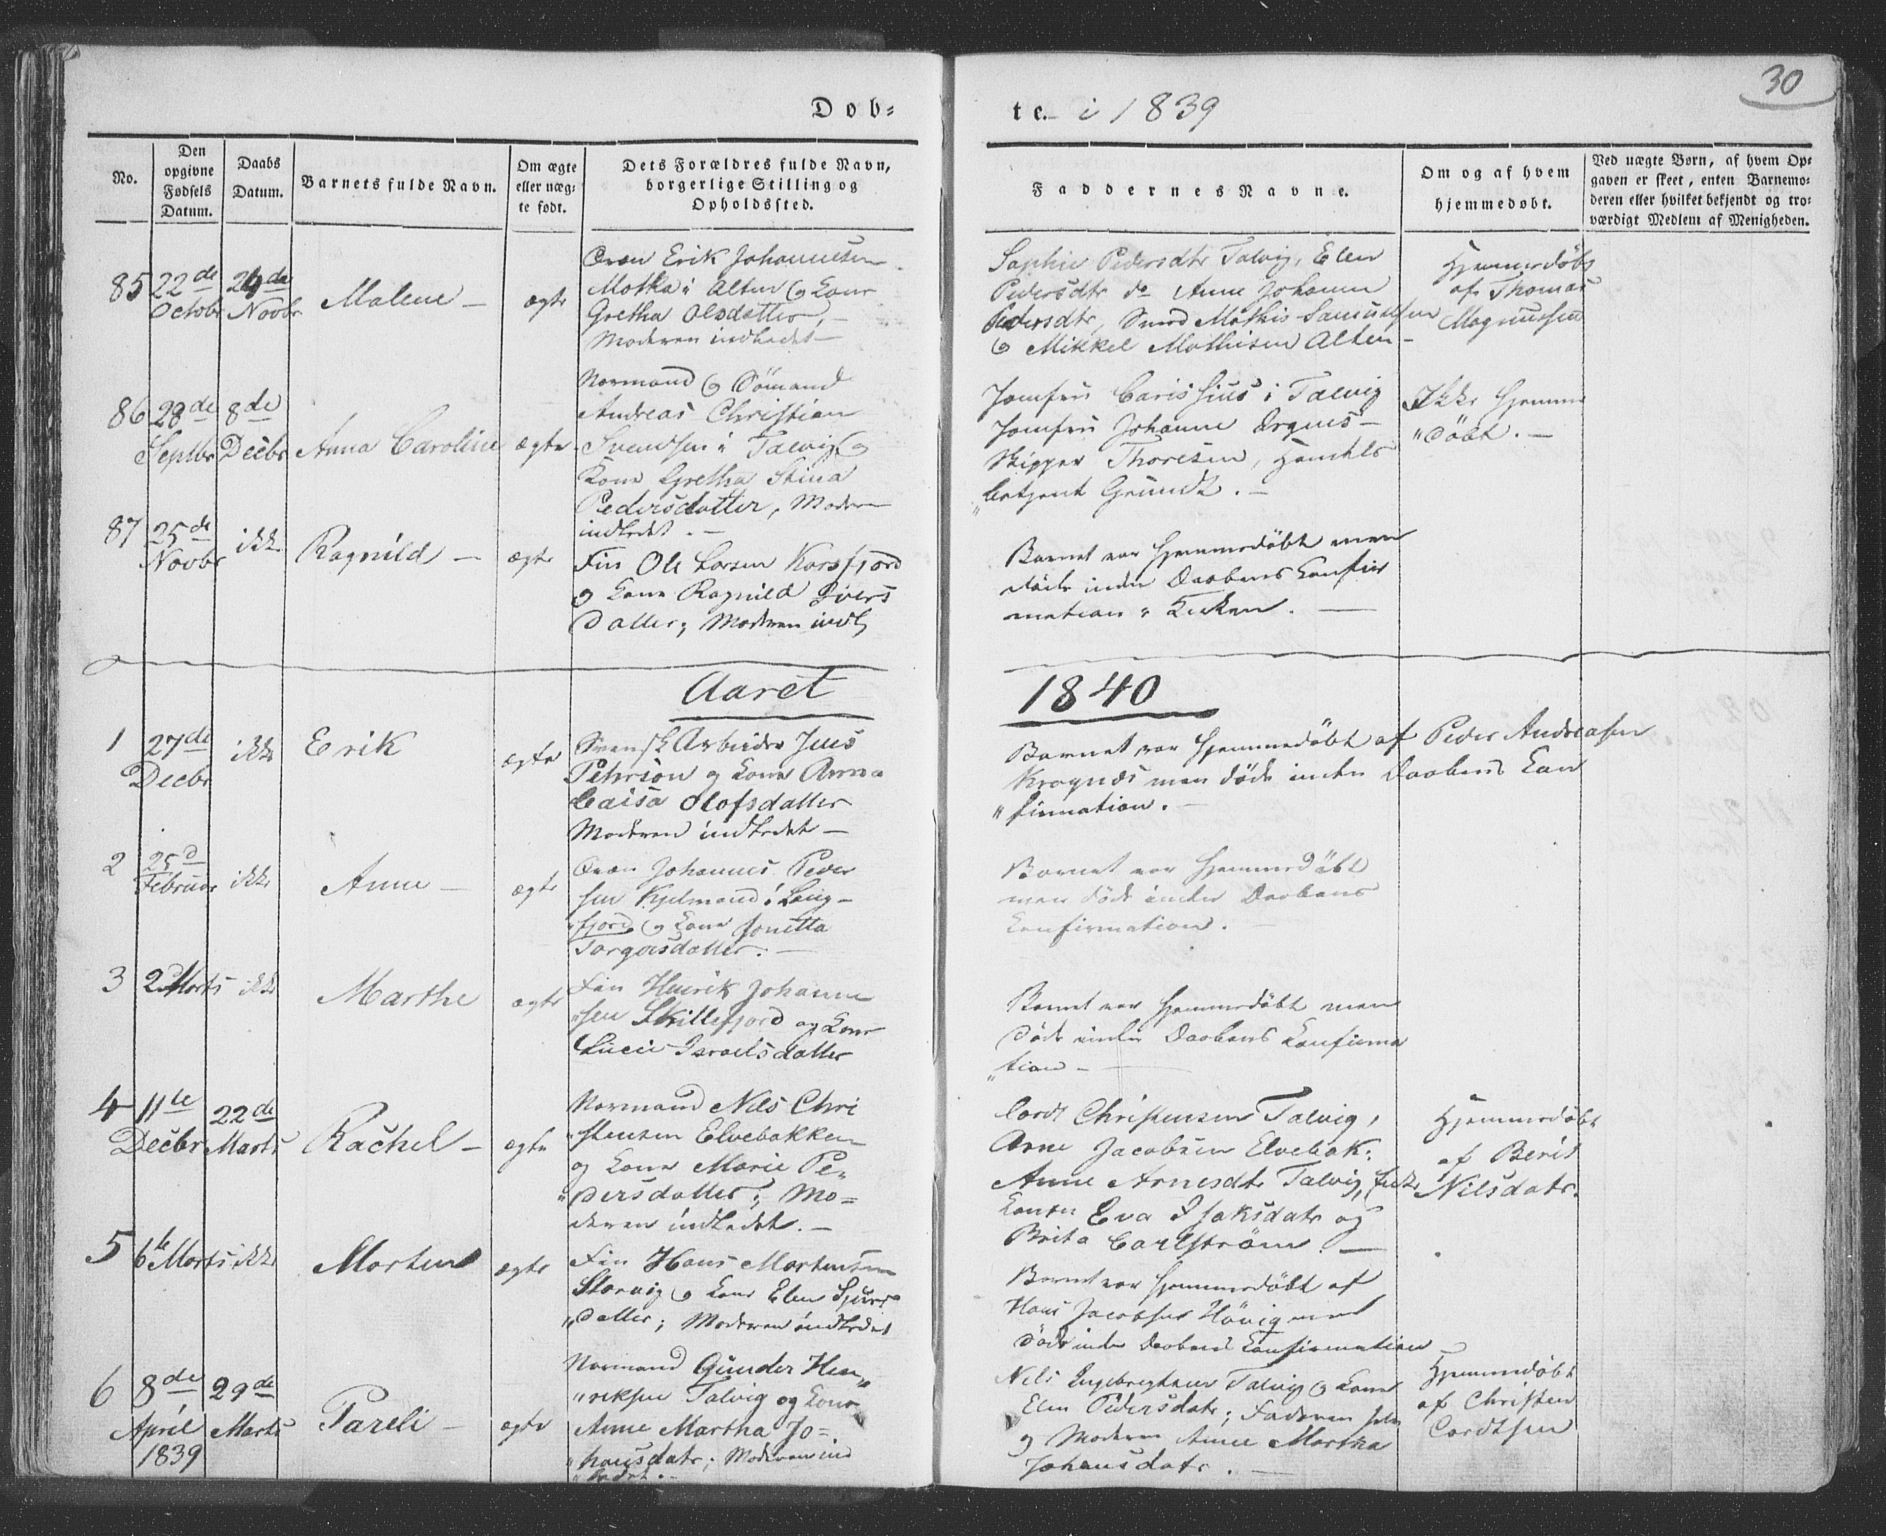 30
Døb=
te. i 1839
No.
Den opgivne Fødsels Datum.
Daabs Datum.
Barnets fulde Navn.
Om ægte eller uæg-
te født.
Dets Forældres fulde Navn,
borgerlige Stilling og
Opholdssted.
Faddernes Navne.
Om og af hvem
hjemmedøbt.
Ved uægte Børn, af hvem Op-
gaven er skeet, enten Barnemo-
deren eller hvilket bekjendt og tro-
værdigt Medlem af Menigheden.
85 22de Octobr 24de Novbr Malene – ægte
Qvæn Erik Johannesen
Mathis i Alten og Kone
Gretha Olsdatter,
Moderen indledet –
Sophie Pedersdtr Talvig, Elen
Pedersdtr do Anne Johanna
Pedersdtr, Svend Mathis Samuelsen
og Mikkel Mathisen Alten –
Hjemmedøbt
af Thomas
Magnussen
86 28de Septbr 8de Decbr Anna Caroline ægte
Normand og Sømand
Andreas Christian
Svendsen i Talvig og
Kone Gretha Stina
Pedersdatter, Moderen
indledet. –
Jomfru Carissius i Talvig
Jomfru Johanne
Skipper Thoresen, Handels
"betjent Grundt. –
Ikke Hjemme
"døbt. –
87 25de Novbr ikke Ragnild – ægte
Fin Ole Larsen Korsfjord
og Kone Ragnild Ivers
datter; Moderen indl
Barnet var Hjemmedøbt men
døde inden Daabens Confir
mation i Kirken. –
Aaret
1840
1 27de Decbr ikke Erik ægte
Svensk Arbeider Jens
Pehrson og Kone Anna
Caisa Olofsdatter
Moderen indledet –
Barnet var Hjemmedøbt af Peder Andreasen
Kragnæs men døde inden Daabens Con
"firmation. –
2 25d Februar ikke Anne – ægte
Qvæn Johannes Peder
sen Kjelmand i Lang –
"fjord og Kone Jonetta
Torgersdatter. –
Barnet var Hjemmedøbt
men døde inden Daabens
Confirmation. –
3 2 Marts ikke Marthe ægte
Fin Henrik Johanne
"sen Skillefjord og Kone
Lucie Israelsdatter
Barnet var Hjemmedøbt men
døde inden Daabens Confirma
"tion –
4 11te Decbr 22de Marts Rachel – ægte
Normand Nils Chri
"stensen Elvebakken
og Kone Marie Pe=
"dersdatter; Mo=
deren indledet. –
Cordt Christensen Talvig,
Arne Jacobsen Elvebak:
Anne Arnesdtr Talvig,
Konen Eva Isaksdatr og
Brita Carlstrøm. –
Hjemmedøbt
af Berit
Nilsdatr.
5 6te Marts ikke Morten ægte
Fin Hans Mortensen
Storvig og Kone Elen Sjurs
"datter; Moderen indledet
Barnet var Hjemmedøbt af
Hans Jacobsen Høvig men
døde inden Daabens Confirmation –
6 8de April 1839 29de Marts Pareli – ægte
Normand Gunder Hen
"riksen Talvig og Kone
Anne Martha Jo=
"hansdatr; Moderen ind
"ledet. –
Nils Engebregtsen Talvig og Kone
Elen Pedersdatr; Faderen selv
og Moderen Anne Martha
Johansdatr. –
Hjemmedøbt
af Christen
Cordtsen